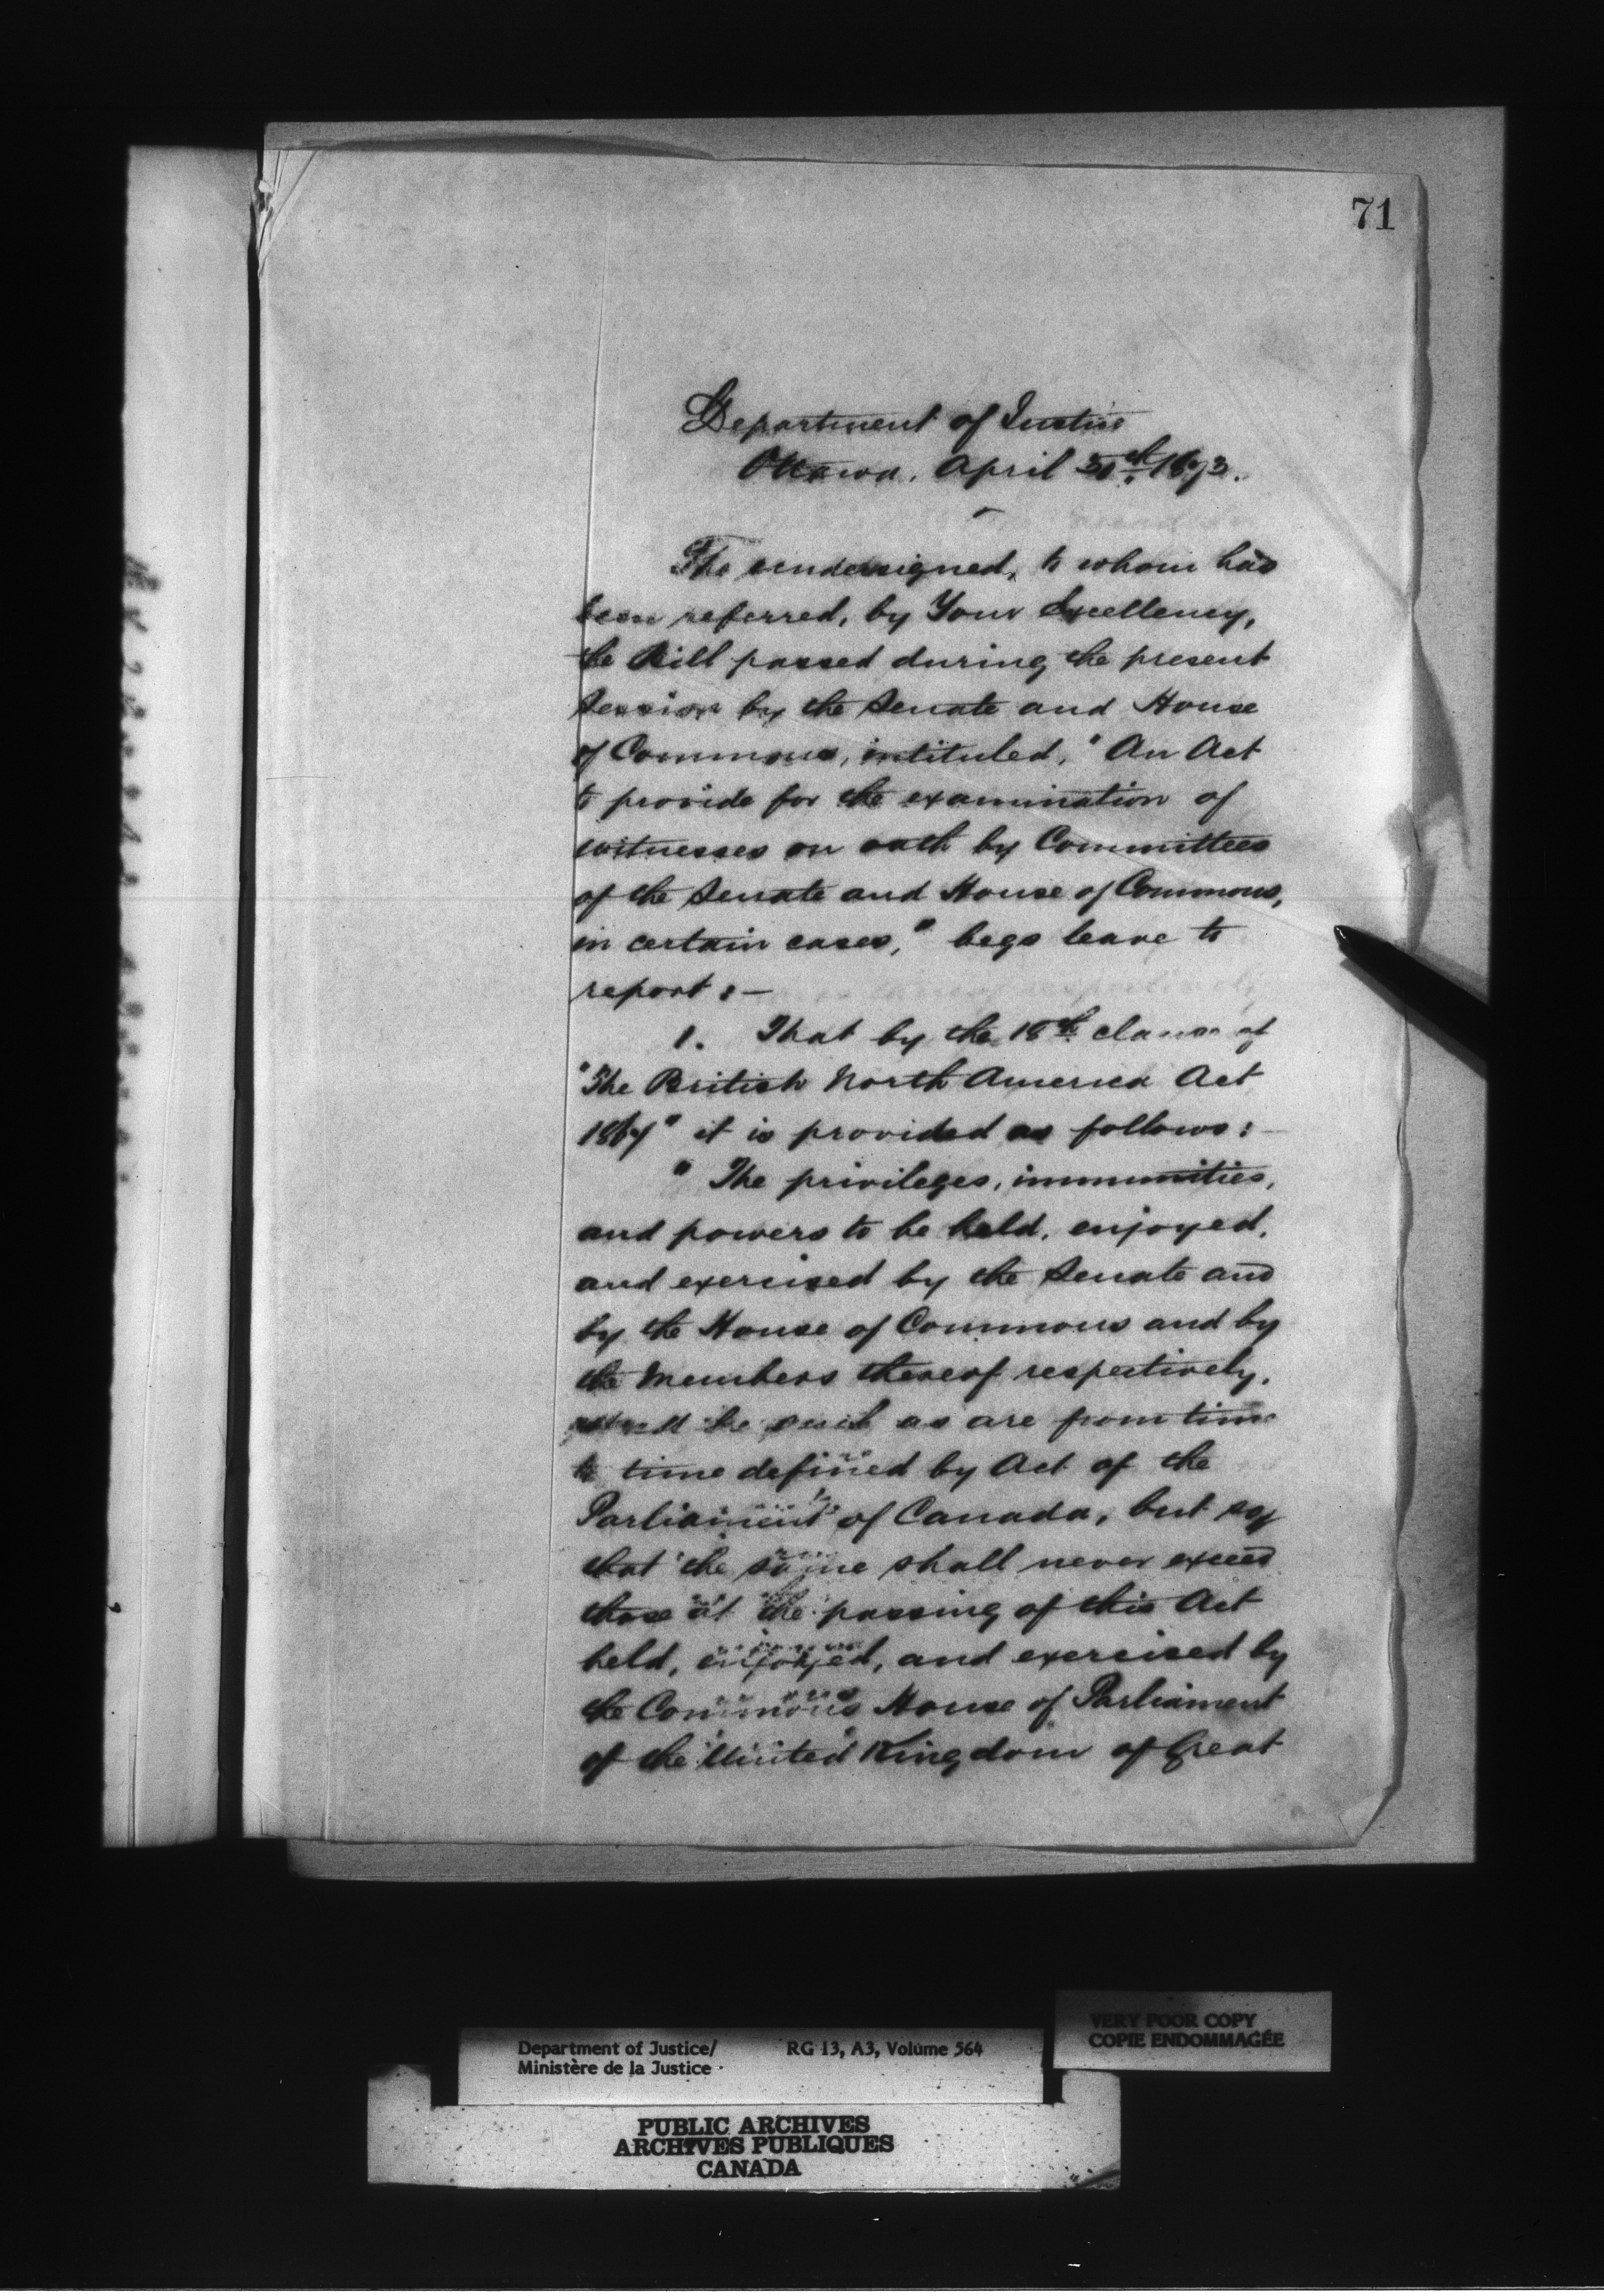 71
Department of Justice
Ottawa. April 30th 1873.
The undersigned, to whom has
been referred, by Your Excellency,
the Bill passed during the present
Session by the Senate and House
of Commons, intituled, "An Act
to provide for the examination of
witnesses on oath by Committees
of the Senate and House of Commons,
in certain cases," begs leave to
report :—
1. That by the 18th clause of
"The British North America Act
1867" it is provided as follows :—
"The privileges, immunities,
and powers to be held, enjoyed,
and exercised by the Senate and
by the House of Commons and by
the Members thereof respectively,
shall be such as are from time
to time defined by Act of the
Parliament of Canada, but so
that the same shall never exceed
those at the passing of this Act
held, enjoyed, and exercised by
the Commons House of Parliament
of the United Kingdom of Great
VERY POOR COPY
COPIE ENDOMMAGÉE
Department of Justice/ RG 13, A3, Volume 564
Ministère de la Justice
PUBLIC ARCHIVES
ARCHIVES PUBLIQUES
CANADA